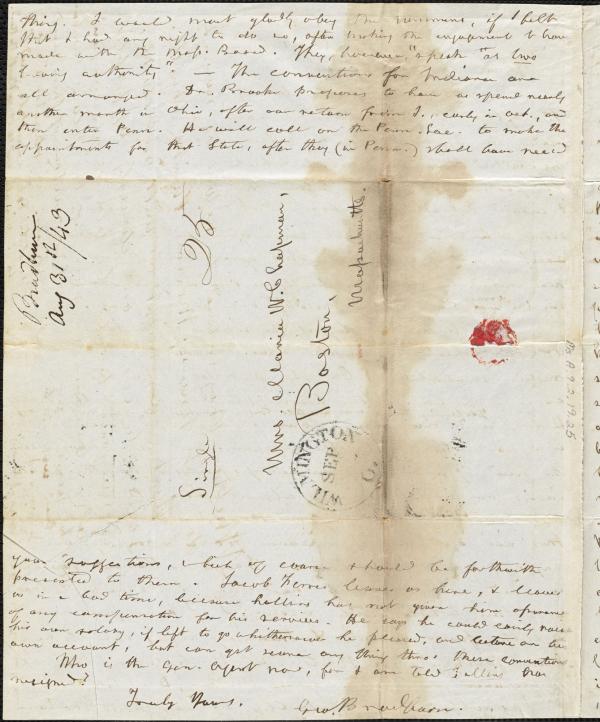 thing. I would most gladly obey the summons, if I felt
that I had any right to do so, after making the engagement I have
made with the Mass. Board. They, however, "speak" "as two
having authority". — The conventions for Indiana are
all arranged. Dr. Brooke proposes to have us spend nearly
another month in Ohio, after our return from I., early in Oct., and
then enter Penn. He will call on the Penn. Soc. to make the
appointments for that State, after they (in Penn.) shall have rec'd
Bradburn
Aug 31st/43
25
Single
Mrs. Maria W. Chapman,
Boston,
Massachusetts.
WILMINGTON
SEP
O
Ms. A.9.2.19.25
your suggestions, & but of course should be forthwith
presented to them. Jacob Ferris leaves us here, & leaves
us in a bad time, because Collins has not given him assurance
of any compensation for his services. He says he could easily raise
his own salary, if left to go whithersoever he pleased, and lecture on his
own account, but can get scarce any thing thro' these conventions
Who is the Gen. Agent now, for I am told Collins has
resigned?
Truly Yours,
Geo. Bradburn.